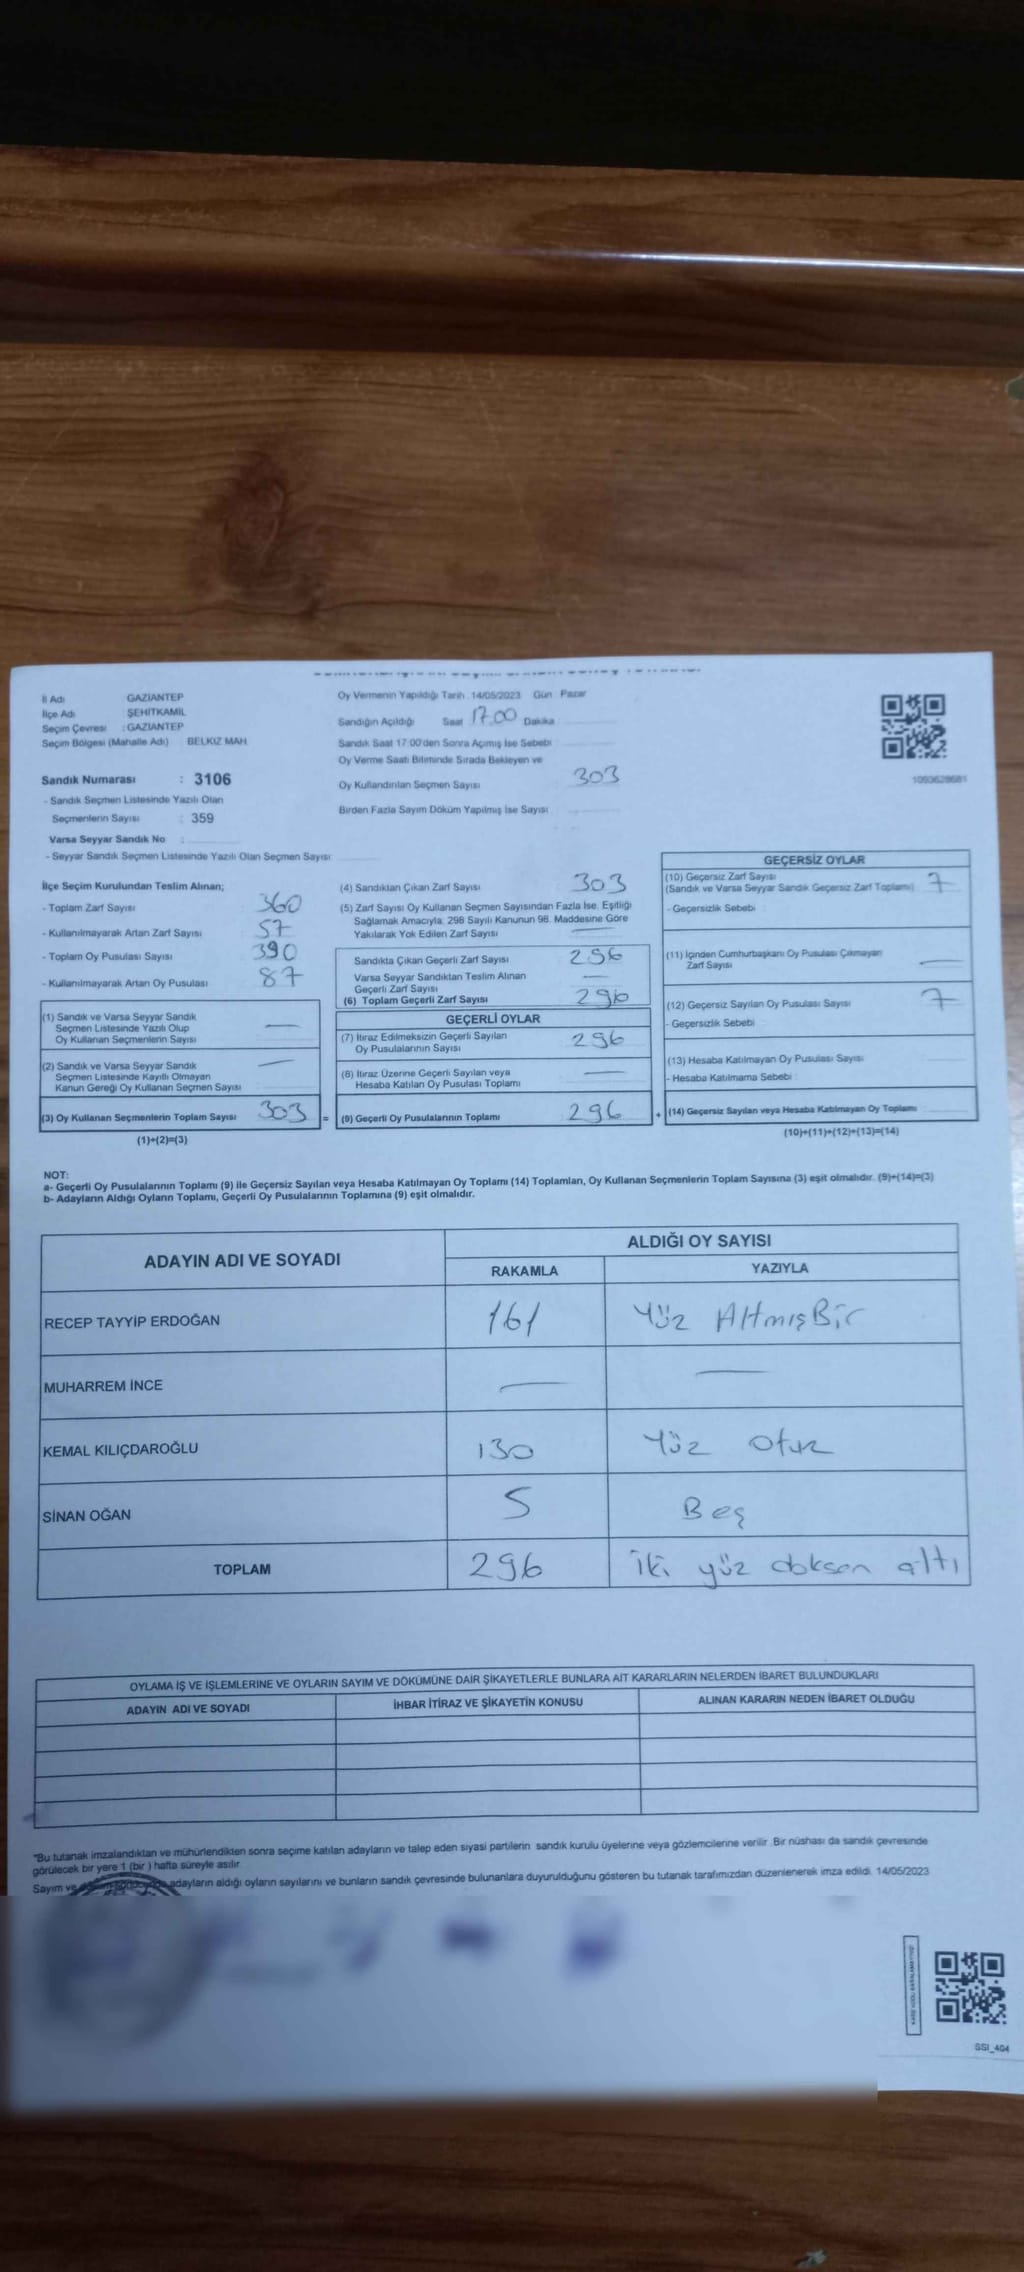 İl Adı GAZİANTEP
İlçe Adı ŞEHİTKAMİL
Seçim Çevresi : GAZİANTEP
Seçim Bölgesi (Mahalle Adı) BELKIZ MAH.
Oy Vermenin Yapıldığı Tarih 14/05/2023 Gün Pazar
Sandığın Açıldığı Saat 17.00 Dakika
Sandık Saat 17.00'den Sonra Açılmış İse Sebebi
Oy Verme Saati Bitiminde Sırada Bekleyen ve
Oy Kullandırılan Seçmen Sayısı 303
Birden Fazla Sayım Döküm Yapılmış İse Sayısı
1093628681
Sandık Numarası : 3106
- Sandık Seçmen Listesinde Yazılı Olan
Seçmenlerin Sayısı : 359
Varsa Seyyar Sandık No :
- Seyyar Sandık Seçmen Listesinde Yazılı Olan Seçmen Sayısı
İlçe Seçim Kurulundan Teslim Alınan;
- Toplam Zarf Sayısı 360
- Kullanılmayarak Artan Zarf Sayısı 57
- Toplam Oy Pusulası Sayısı 390
- Kullanılmayarak Artan Oy Pusulası 87
(1) Sandık ve Varsa Seyyar Sandık
Seçmen Listesinde Yazılı Olup
Oy Kullanan Seçmenlerin Sayısı —
(2) Sandık ve Varsa Seyyar Sandık
Seçmen Listesinde Kayıtlı Olmayan
Kanun Gereği Oy Kullanan Seçmen Sayısı —
(3) Oy Kullanan Seçmenlerin Toplam Sayısı 303 =
(1)+(2)=(3)
(4) Sandıktan Çıkan Zarf Sayısı 303
(5) Zarf Sayısı Oy Kullanan Seçmen Sayısından Fazla İse, Eşitliği
Sağlamak Amacıyla, 298 Sayılı Kanunun 98. Maddesine Göre
Yakılarak Yok Edilen Zarf Sayısı —
Sandıkta Çıkan Geçerli Zarf Sayısı 296
Varsa Seyyar Sandıktan Teslim Alınan
Geçerli Zarf Sayısı —
(6) Toplam Geçerli Zarf Sayısı 296
GEÇERLİ OYLAR
(7) İtiraz Edilmeksizin Geçerli Sayılan
Oy Pusulalarının Sayısı 296
(8) İtiraz Üzerine Geçerli Sayılan veya
Hesaba Katılan Oy Pusulası Toplamı —
(9) Geçerli Oy Pusulalarının Toplamı 296 +
GEÇERSİZ OYLAR
(10) Geçersiz Zarf Sayısı
(Sandık ve Varsa Seyyar Sandık Geçersiz Zarf Toplamı) 7
- Geçersizlik Sebebi
(11) İçinden Cumhurbaşkanı Oy Pusulası Çıkmayan
Zarf Sayısı —
(12) Geçersiz Sayılan Oy Pusulası Sayısı 7
- Geçersizlik Sebebi
(13) Hesaba Katılmayan Oy Pusulası Sayısı
- Hesaba Katılmama Sebebi
(14) Geçersiz Sayılan veya Hesaba Katılmayan Oy Toplamı
(10)+(11)+(12)+(13)=(14)
NOT:
a- Geçerli Oy Pusulalarının Toplamı (9) ile Geçersiz Sayılan veya Hesaba Katılmayan Oy Toplamı (14) Toplamları, Oy Kullanan Seçmenlerin Toplam Sayısına (3) eşit olmalıdır. (9)+(14)=(3)
b- Adayların Aldığı Oyların Toplamı, Geçerli Oy Pusulalarının Toplamına (9) eşit olmalıdır.
ADAYIN ADI VE SOYADI ALDIĞI OY SAYISI
RAKAMLA YAZIYLA
RECEP TAYYİP ERDOĞAN 161 Yüz AltmışBir
MUHARREM İNCE — —
KEMAL KILIÇDAROĞLU 130 Yüz Otuz
SİNAN OĞAN 5 Beş
TOPLAM 296 iki yüz doksan altı
OYLAMA İŞ VE İŞLEMLERİNE VE OYLARIN SAYIM VE DÖKÜMÜNE DAİR ŞİKAYETLERLE BUNLARA AİT KARARLARIN NELERDEN İBARET BULUNDUKLARI
ADAYIN ADI VE SOYADI İHBAR İTİRAZ VE ŞİKAYETİN KONUSU ALINAN KARARIN NEDEN İBARET OLDUĞU
"Bu tutanak imzalandıktan ve mühürlendikten sonra seçime katılan adayların ve talep eden siyasi partilerin sandık kurulu üyelerine veya gözlemcilerine verilir. Bir nüshası da sandık çevresinde
görülecek bir yere 1 (bir ) hafta süreyle asılır.
Sayım ve adayların aldığı oyların sayılarını ve bunların sandık çevresinde bulunanlara duyurulduğunu gösteren bu tutanak tarafımızdan düzenlenerek imza edildi. 14/05/2023
SSI_404